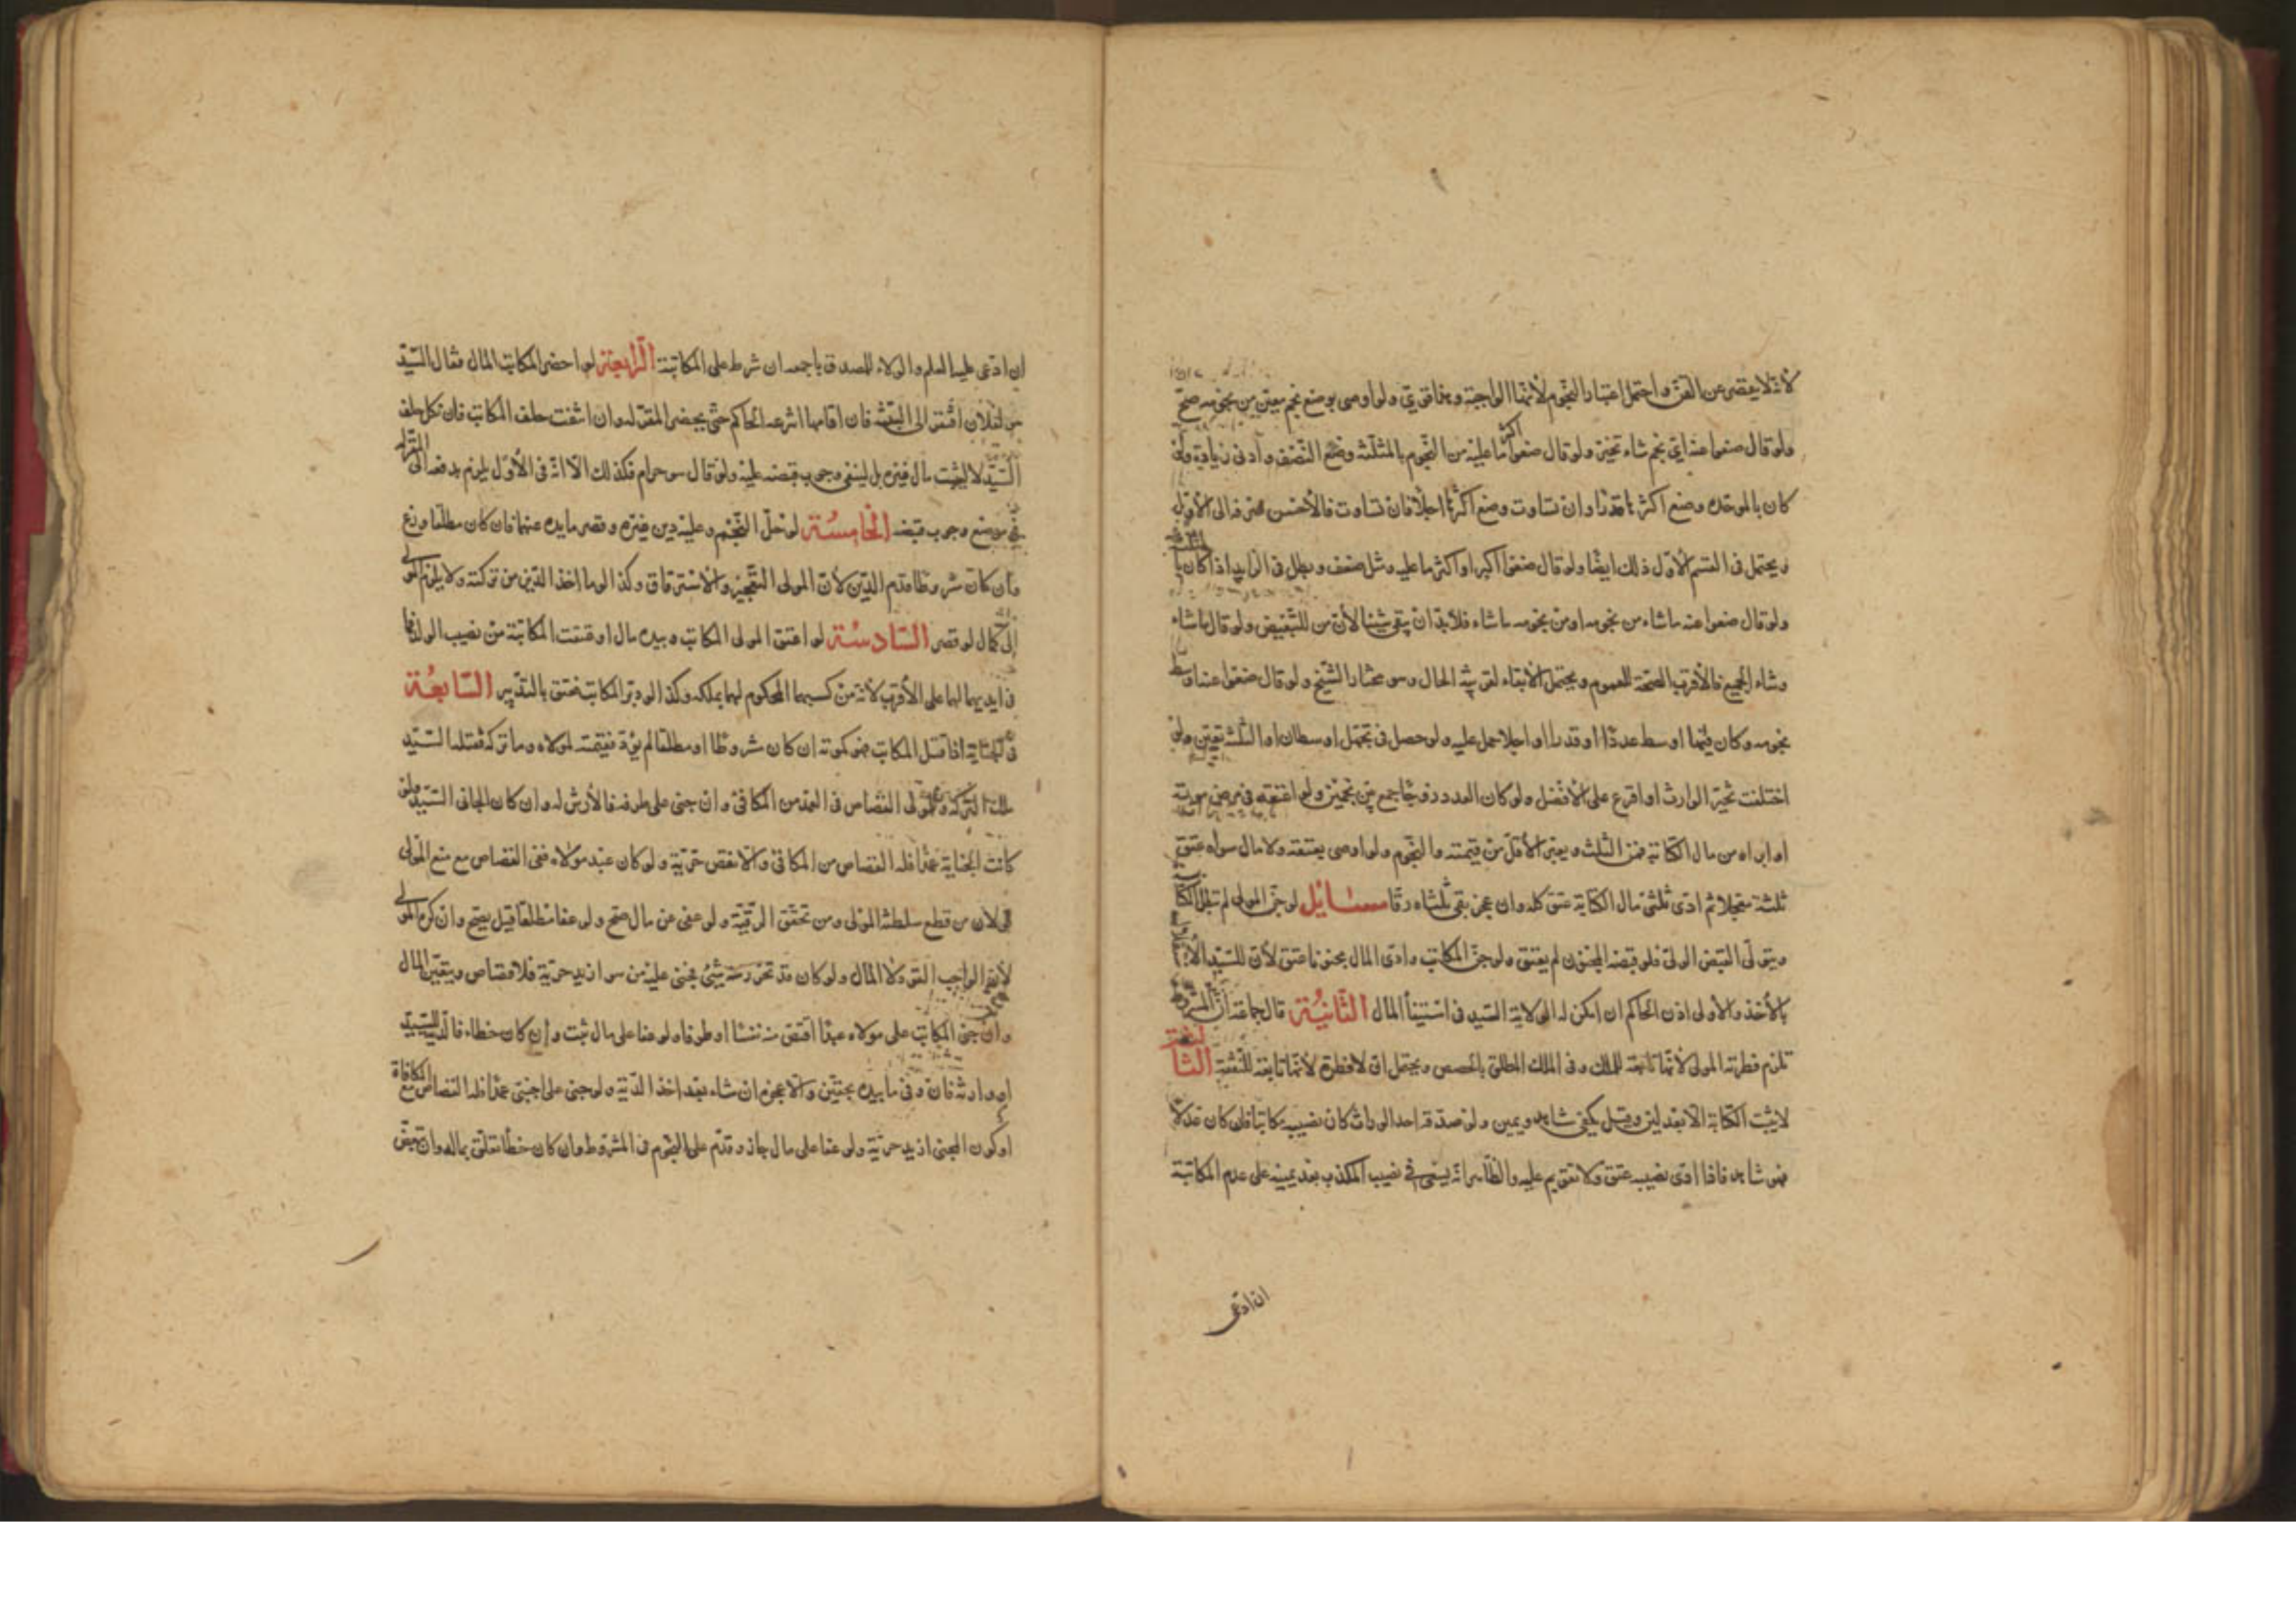 لانه لا يقصر عن الفن واحتمل اعتبار النجوم لأنها الواجبة وهما قويتي ولو اوصى بوضع نجم معين من نجومه صح
ولو قال ضعوا عنه اي نجم شاء تخير ولو قال ضعوا اكثر ما عليه من النجوم بالمثلثة وضع النصف وادنى زيادة ولو
كان بالموحدة وضع اكثرها قدرا وان تساوت وضع اكثرها اجلا فان تساوت فالأحسن صرفه الى الأول
ويحتمل في القسم الأول ذلك ايضا ولو قال ضعوا اكبر او اكثر ما عليه ومثل ضعف وبطل في الزايد اذا كان
ولو قال ضعوا عنه ما شاء من نجومه او من نجومه ما شاء فلا بد ان يبقي شيئا لأن من للتبعيض ولو قال ما شاء
وشاء الجميع فالأقرب الصحة للعموم ويحتمل الابقاء لقرينة الحال وهو مختار الشيخ ولو قال ضعوا عنه اوسط
نجومه وكان فيها اوسط عددا او قدرا او اجلا حمل عليه ولو حصل في محتمل اوسطان او الثلثة تعين ولو
اختلفت تخير الوارث او اقرع على الأفضل ولو كان العدد زوجا جمع بين نجمين ولو اعتقه في مرض موته
او ابراه من مال الكتابة فمن الثلث ويعتبر الأقل من قيمته والنجوم ولو اوصى بعتقه ولا مال سواه عتق
ثلثه معجلا ثم ادى ثلثي مال الكتابة عتق كله وان عجز بقي ثلثاه رقا مسائل لو جن المولى لم تبطل الكتابة
ويتولى القبض الولي فلو قبضه المجنون لم يعتق ولو جن المكاتب وادى المال مجنونا عتق لأن للسيد
بالأخذ والأولى اذن الحاكم ان امكن له الولاية السيد في استيفاء المال الثانية قال جماعة ان المشروط
تلزم فطرته المولى لأنها تابعة للملك وفي الملك المطلق بالحصص ويحتمل ان لا فطرة لأنها تابعة للنفقة الثالثة
لا يثبت الكتابة الا بعدلين وقيل يكفي شاهد ويمين ولو صدقه احد الوراث كان نصيبه مكاتبا فلو كان عدلا
فهو شاهد فاذا ادى نصيبه عتق ولا تقويم عليه والظاهر انه يسعى في نصيب المكذب بعد يمينه على عدم المكاتبة
ان ادعى
ان ادعى عليه العلم والولاء للمصدق باجمعه ان شرط على المكاتبة الرابعة لو احضر المكاتب المال فقال السيد
هو لفلان افتقر الى البينة فان اقامها انتزعه الحاكم حتى يحضر المقر له وان انتفت حلف المكاتب فان نكل حلف
السيد لا ليثبت مال غيره بل لينفي وجوب قبضه عليه ولو قال هو حرام فكذلك الا انه في الأول يلزم بدفعه الى المقر له
في موضع وجوب قبضه الخامسة لو حل النجم وعليه دين غيره وقصر ما بيده عنهما فان كان مطلقا وزع
وان كان مشروطا قدم الدين لأن المولى التعجيز والاسترقاق وكذا لو مات اخذ الدين من تركته ولا يلزم المولى
اكمال لو قصر السادسة لو اعتق المولى المكاتب وبيده مال او عتقت المكاتبة من نصيب الولد
في ايديهما لهما على الأقرب لأنه من كسبهما المحكوم لهما بملكه وكذا لو دبر المكاتب فعتق بالتدبير السابعة
في الجناية اذا قتل المكاتب فهو كموته ان كان مشروطا او مطلقا لم يؤد فقيمته لمولاه وما تركه فقتله السيد
ملك التركة وللمولى القصاص في العمد من المكافئ وان جنى على طرفه فالأرش له وان كان الجاني السيد ولو
كانت الجناية عمدا فله القصاص من المكافئ والانقص حرية ولو كان عبد مولاه ففي القصاص مع منع المولى
قولان من قطع سلطنة المولى ومن تحقق الرقية ولو عفى عن مال صح ولو عفا مطلقا قيل يصح وان كره المولى
لأن الواجب القود لا المال ولو كان قد تحرر منه شيئ فجنى عليه من هو ازيد حرية فلا قصاص ويتعين المال
وان جنى المكاتب على مولاه عمدا اقتص منه نفسا او طرفا ولو عفا على مال ثبت وان كان خطاء فالدية للسيد
او وارثه فان وفى ما بيده بحقين والا عجزه ان شاء بعد اخذ الدية ولو جنى على اجنبي عمدا فله القصاص مع المكافاة
او كون المجني ازيد حرية ولو عفا على مال جاز وقدم على النجوم في المشروط وان كان خطأ تعلق بماله وان تبعض